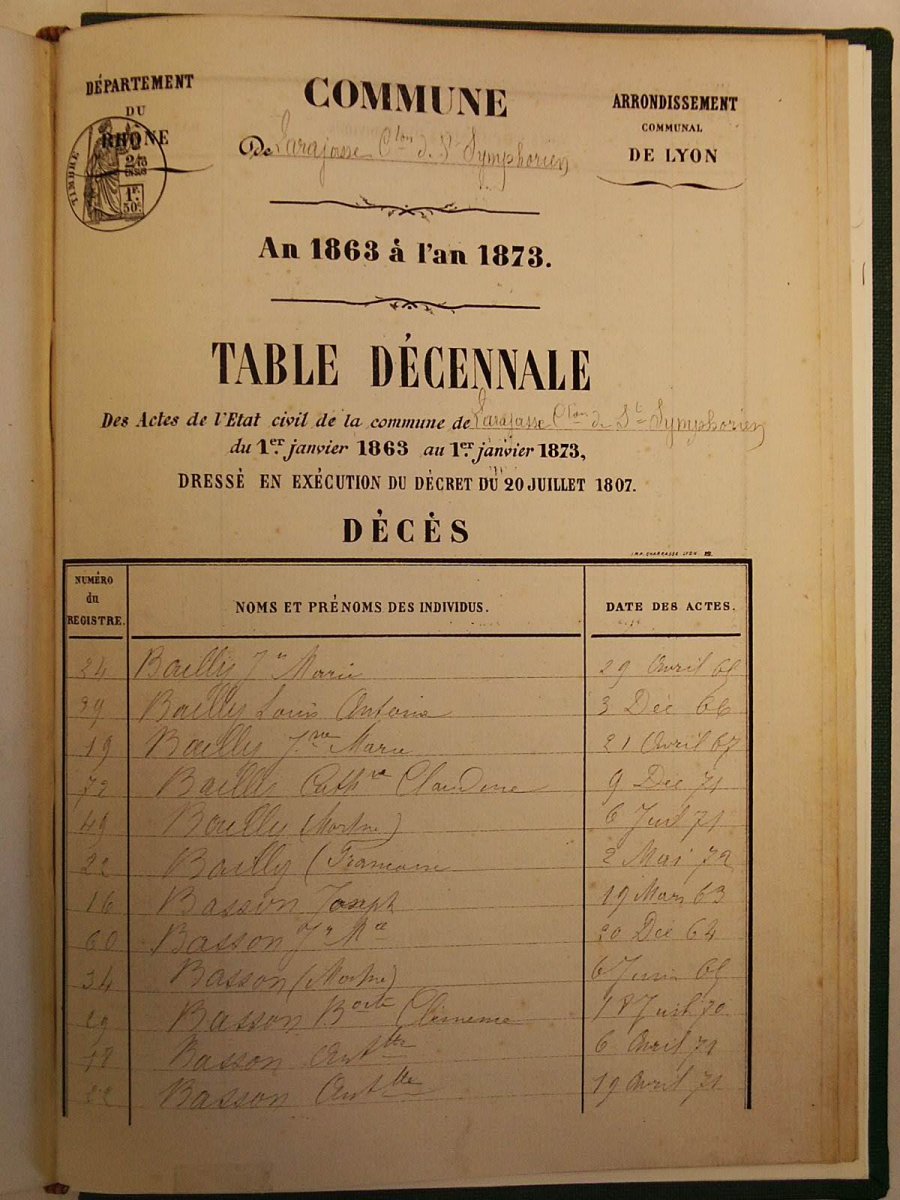 DÉPARTEMENT
DU
RHÔNE
TIMBRE
1F.
50c
COMMUNE
De Larajasse Cton de St Symphorien
ARRONDISSEMENT
COMMUNAL
DE LYON
An 1863 à l'an 1873.
TABLE DÉCENNALE
Des Actes de l'Etat civil de la commune de Larajasse Cton de St Symphorien
du 1er janvier 1863 au 1er janvier 1873,
DRESSÉ EN EXÉCUTION DU DÉCRET DU 20 JUILLET 1807.
DÉCÈS
IMP. CHARRASSE LYON
NUMÉRO du REGISTRE. NOMS ET PRÉNOMS DES INDIVIDUS. DATE DES ACTES.
24 Bailly Jn Marie 29 Avril 65
29 Bailly Louis Antoine 3 Déc 66
19 Bailly Jne Marie 21 Avril 67
72 Bailly Cathne Claudine 9 Déc 71
49 Bailly (Mort né) 6 Juil 71
22 Bailly (Francoise 2 Mai 72
16 Basson Joseph 19 Mars 63
60 Basson Jn Mie 20 Déc 64
34 Basson (Mort né) 6 Juin 65
29 Basson Clémence 18 Juil 70
18 Basson Anttte 6 Avril 71
22 Basson Anttte 19 Avril 71